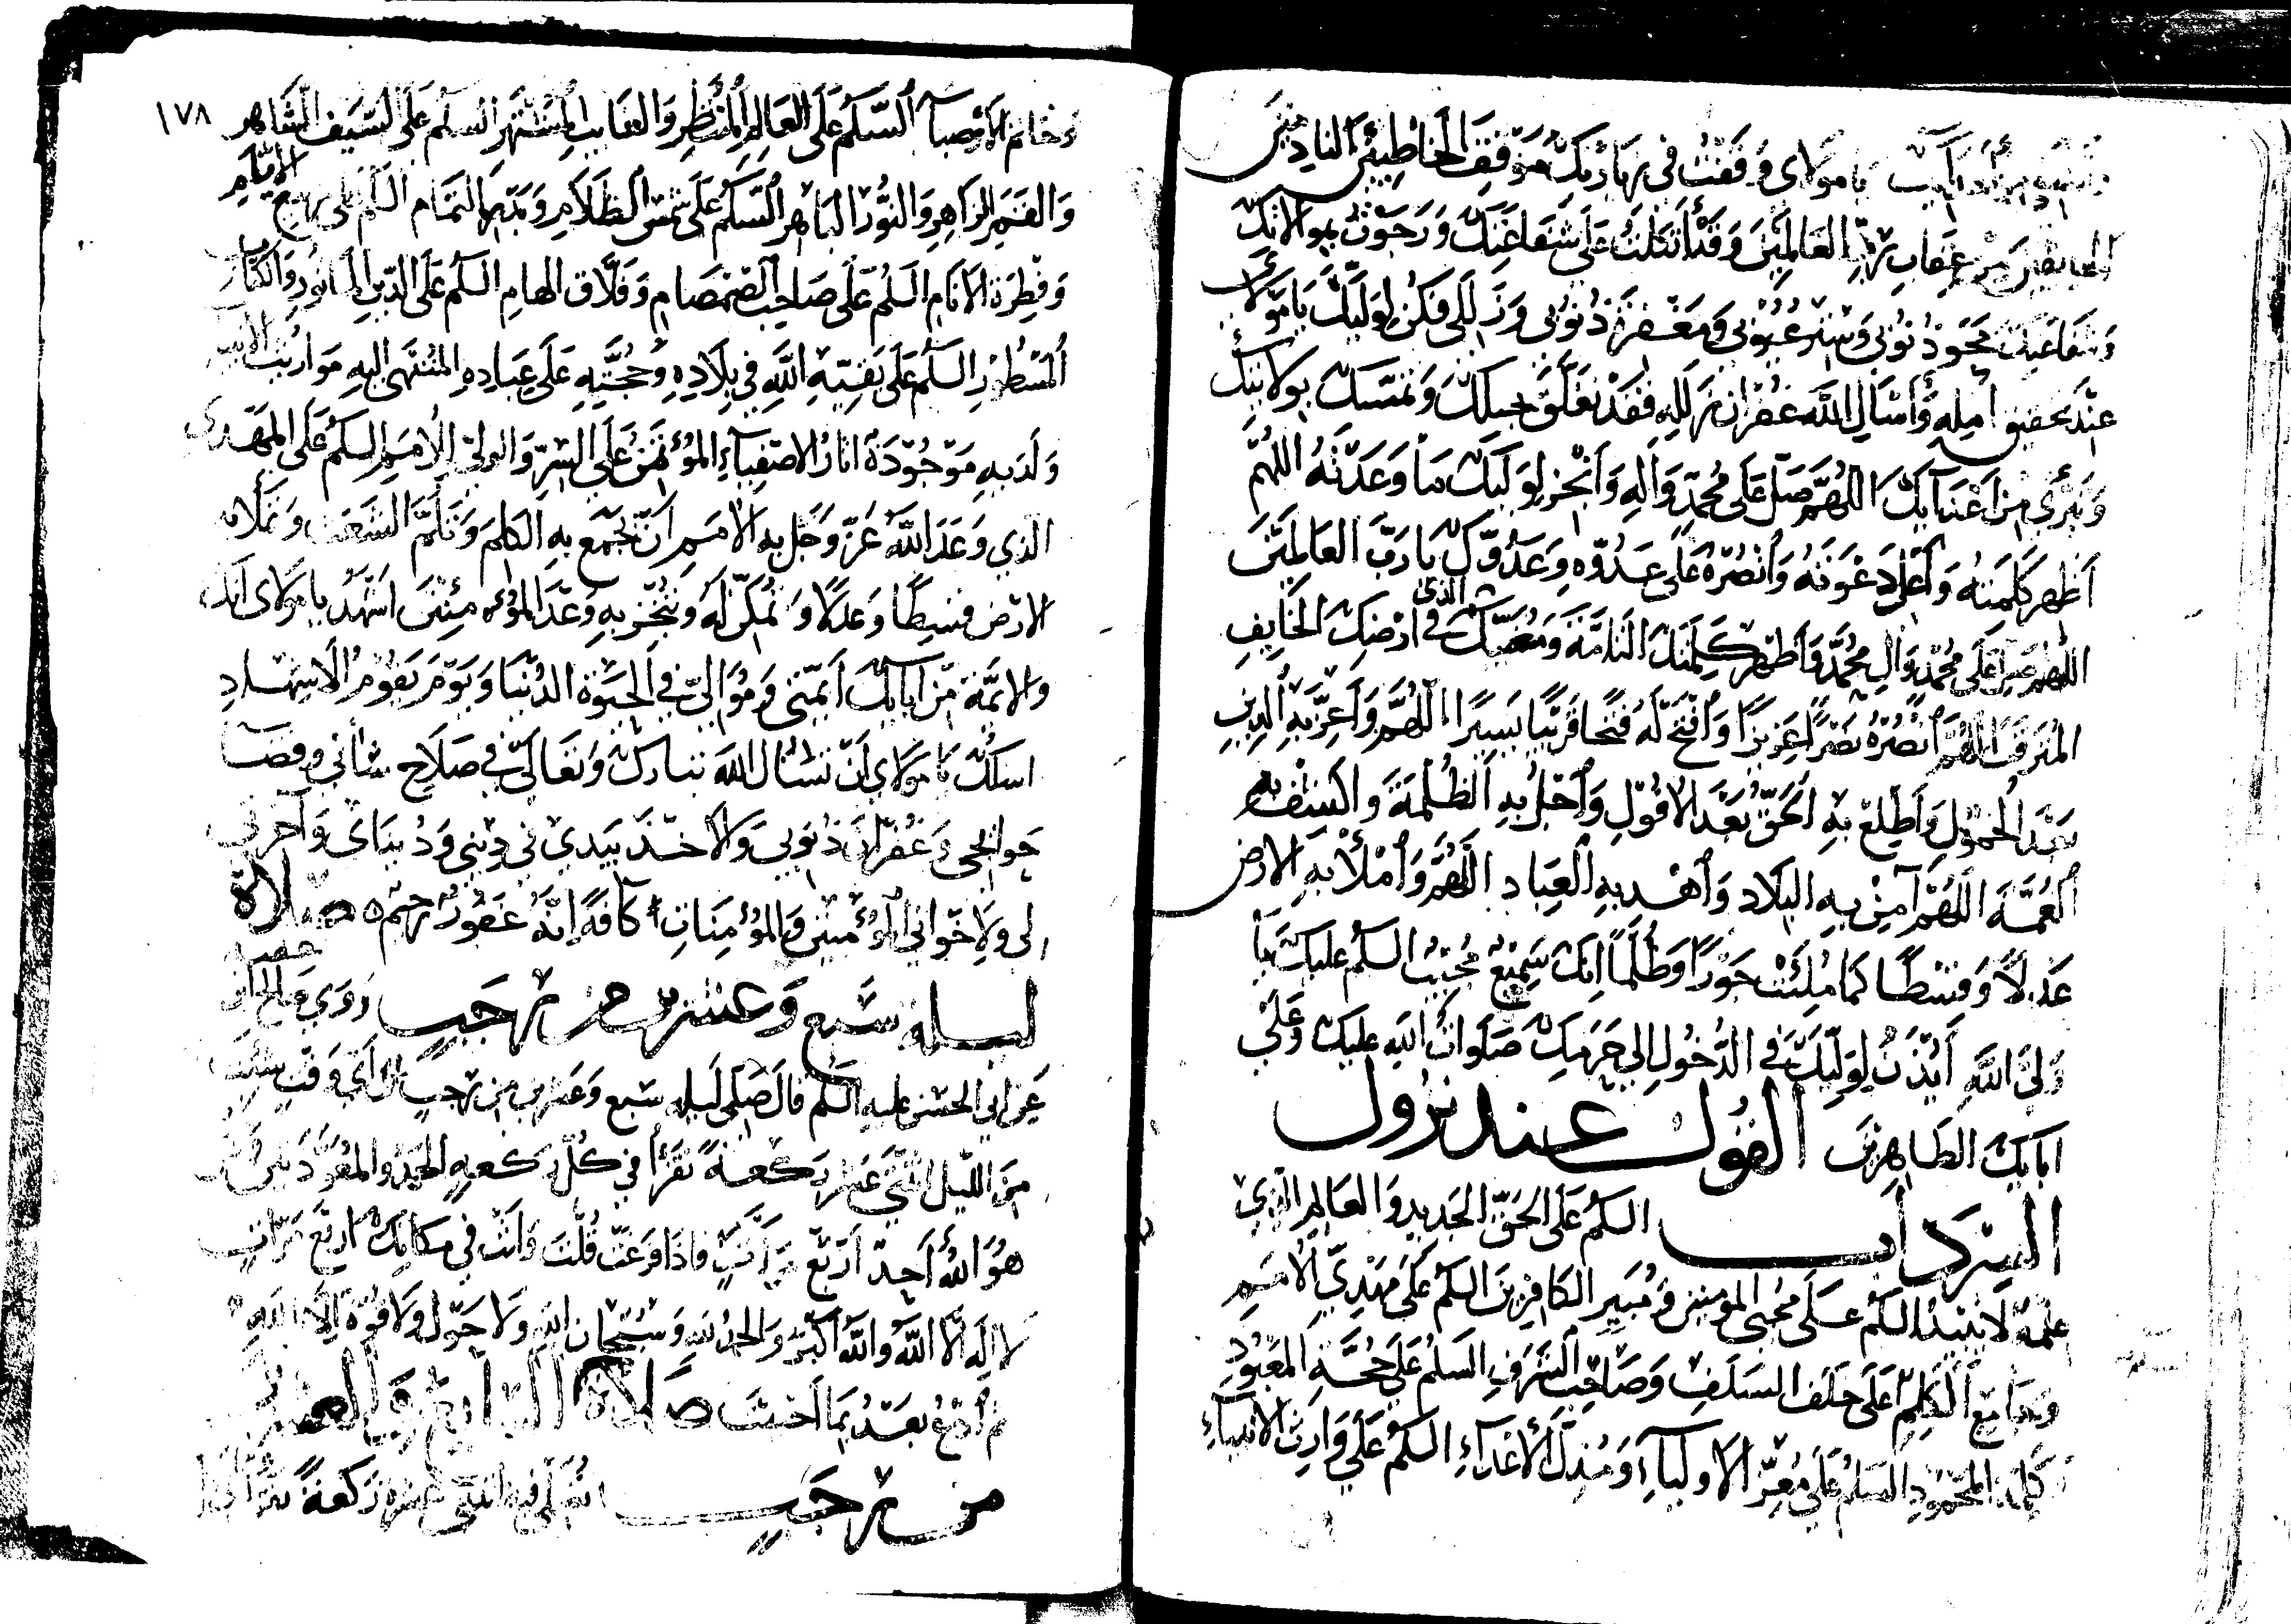 يا مولاي وقفت في زيارتك موقف الخاطئين النادمين
الخائفين من عقاب رب العالمين وقد اتكلت على شفاعتك ورجوت بموالاتك
وشفاعتك محو ذنوبي وستر عيوبي ومغفرة ذنوبي وزللي فكن لوليك يا مولاي
عند تحقيق امله واسال الله غفران زلله فقد تعلق بحبلك وتمسك بولايتك
وتبرى من اعدايك اللهم صل على محمد واله وانجز لوليك ما وعدته اللهم
اظهر كلمته واعل دعوته وانصره على عدوه وعدوك يا رب العالمين
اللهم صل على محمد وال محمد واظهر كلمتك التامة ومغيبك في ارضك الخايف
المترقب اللهم انصره نصرا عزيزا وافتح له فتحا قريبا يسيرا اللهم واعز به الدين
بعد الخمول واطلع به الحق بعد الافول واجل به الظلمة واكشف به
الغمة اللهم آمن به البلاد واهد به العباد اللهم واملأ به الارض
عدلا وقسطا كما ملئت جورا وظلما انك سميع مجيب السلم عليك يا
ولي الله ائذن لوليك في الدخول الى حرمك صلوات الله عليك وعلى
ابايك الطاهرين القول عند نزول
السرداب السلم على الحق الجديد والعالم الذي
علمه لا يبيد السلم على محيي المومنين ومبير الكافرين السلم على مهدي الامم
وجامع الكلم السلم على خلف السلف وصاحب الشرف السلم على حجة المعبود
كلمة المحمود السلم على معز الاولياء ومذل الاعداء السلم على وارث الانبياء
١٧٨
وخاتم الاوصياء السلم على القايم المنتظر والغايب المشتهر السلم على السيف الشاهر
والقمر الزاهر والنور الباهر السلم على شمس الظلام وبدر التمام السلم على ربيع الايتام
وفطرة الانام السلم على صاحب الصمصام وفلاق الهام السلم على الدين الماثور والكتاب
المسطور السلم على بقية الله في بلاده وحجته على عباده المنتهى اليه مواريث الانبياء
ولديه موجودة اثار الاصفياء المؤتمن على السر والولي للامر السلم على المهدي
الذي وعد الله عز وجل به الامم ان يجمع به الكلم ويلم الشعث ويملا به
الارض قسطا وعدلا ويمكن له وينجز به وعد المؤمنين اشهد يا مولاي انك
والائمة من ابايك ائمتي وموالي في الحيوة الدنيا ويوم يقوم الاشهاد
اسلك يا مولاي ان تسئال الله تبارك وتعالى في صلاح شأني وقضاء
حوائجي وغفران ذنوبي والاخذ بيدي في ديني ودنياى وآخرتي
لي ولاخواني المؤمنين والمؤمنات كافة انه غفور رحيم صلاة
ليلة سبع وعشرين من رجب روى صالح
عن ابي الحسن عليه السلم قال صل ليلة سبع وعشرين من رجب اي وقت شئت
من الليل اثنتي عشر ركعة تقرأ في كل ركعة الحمد والمعوذتين وقل
هو الله احد اربع مرات فاذا فرغت قلت وانت في مكانك اربع مرات
لا اله الا الله والله اكبر والحمد لله وسبحان الله ولا حول ولا قوة الا بالله
ثم ادع بعد بما احببت صلاة السابع والعشرين
من رجب تصلى فيه اثنتي عشرة ركعة تقرأ